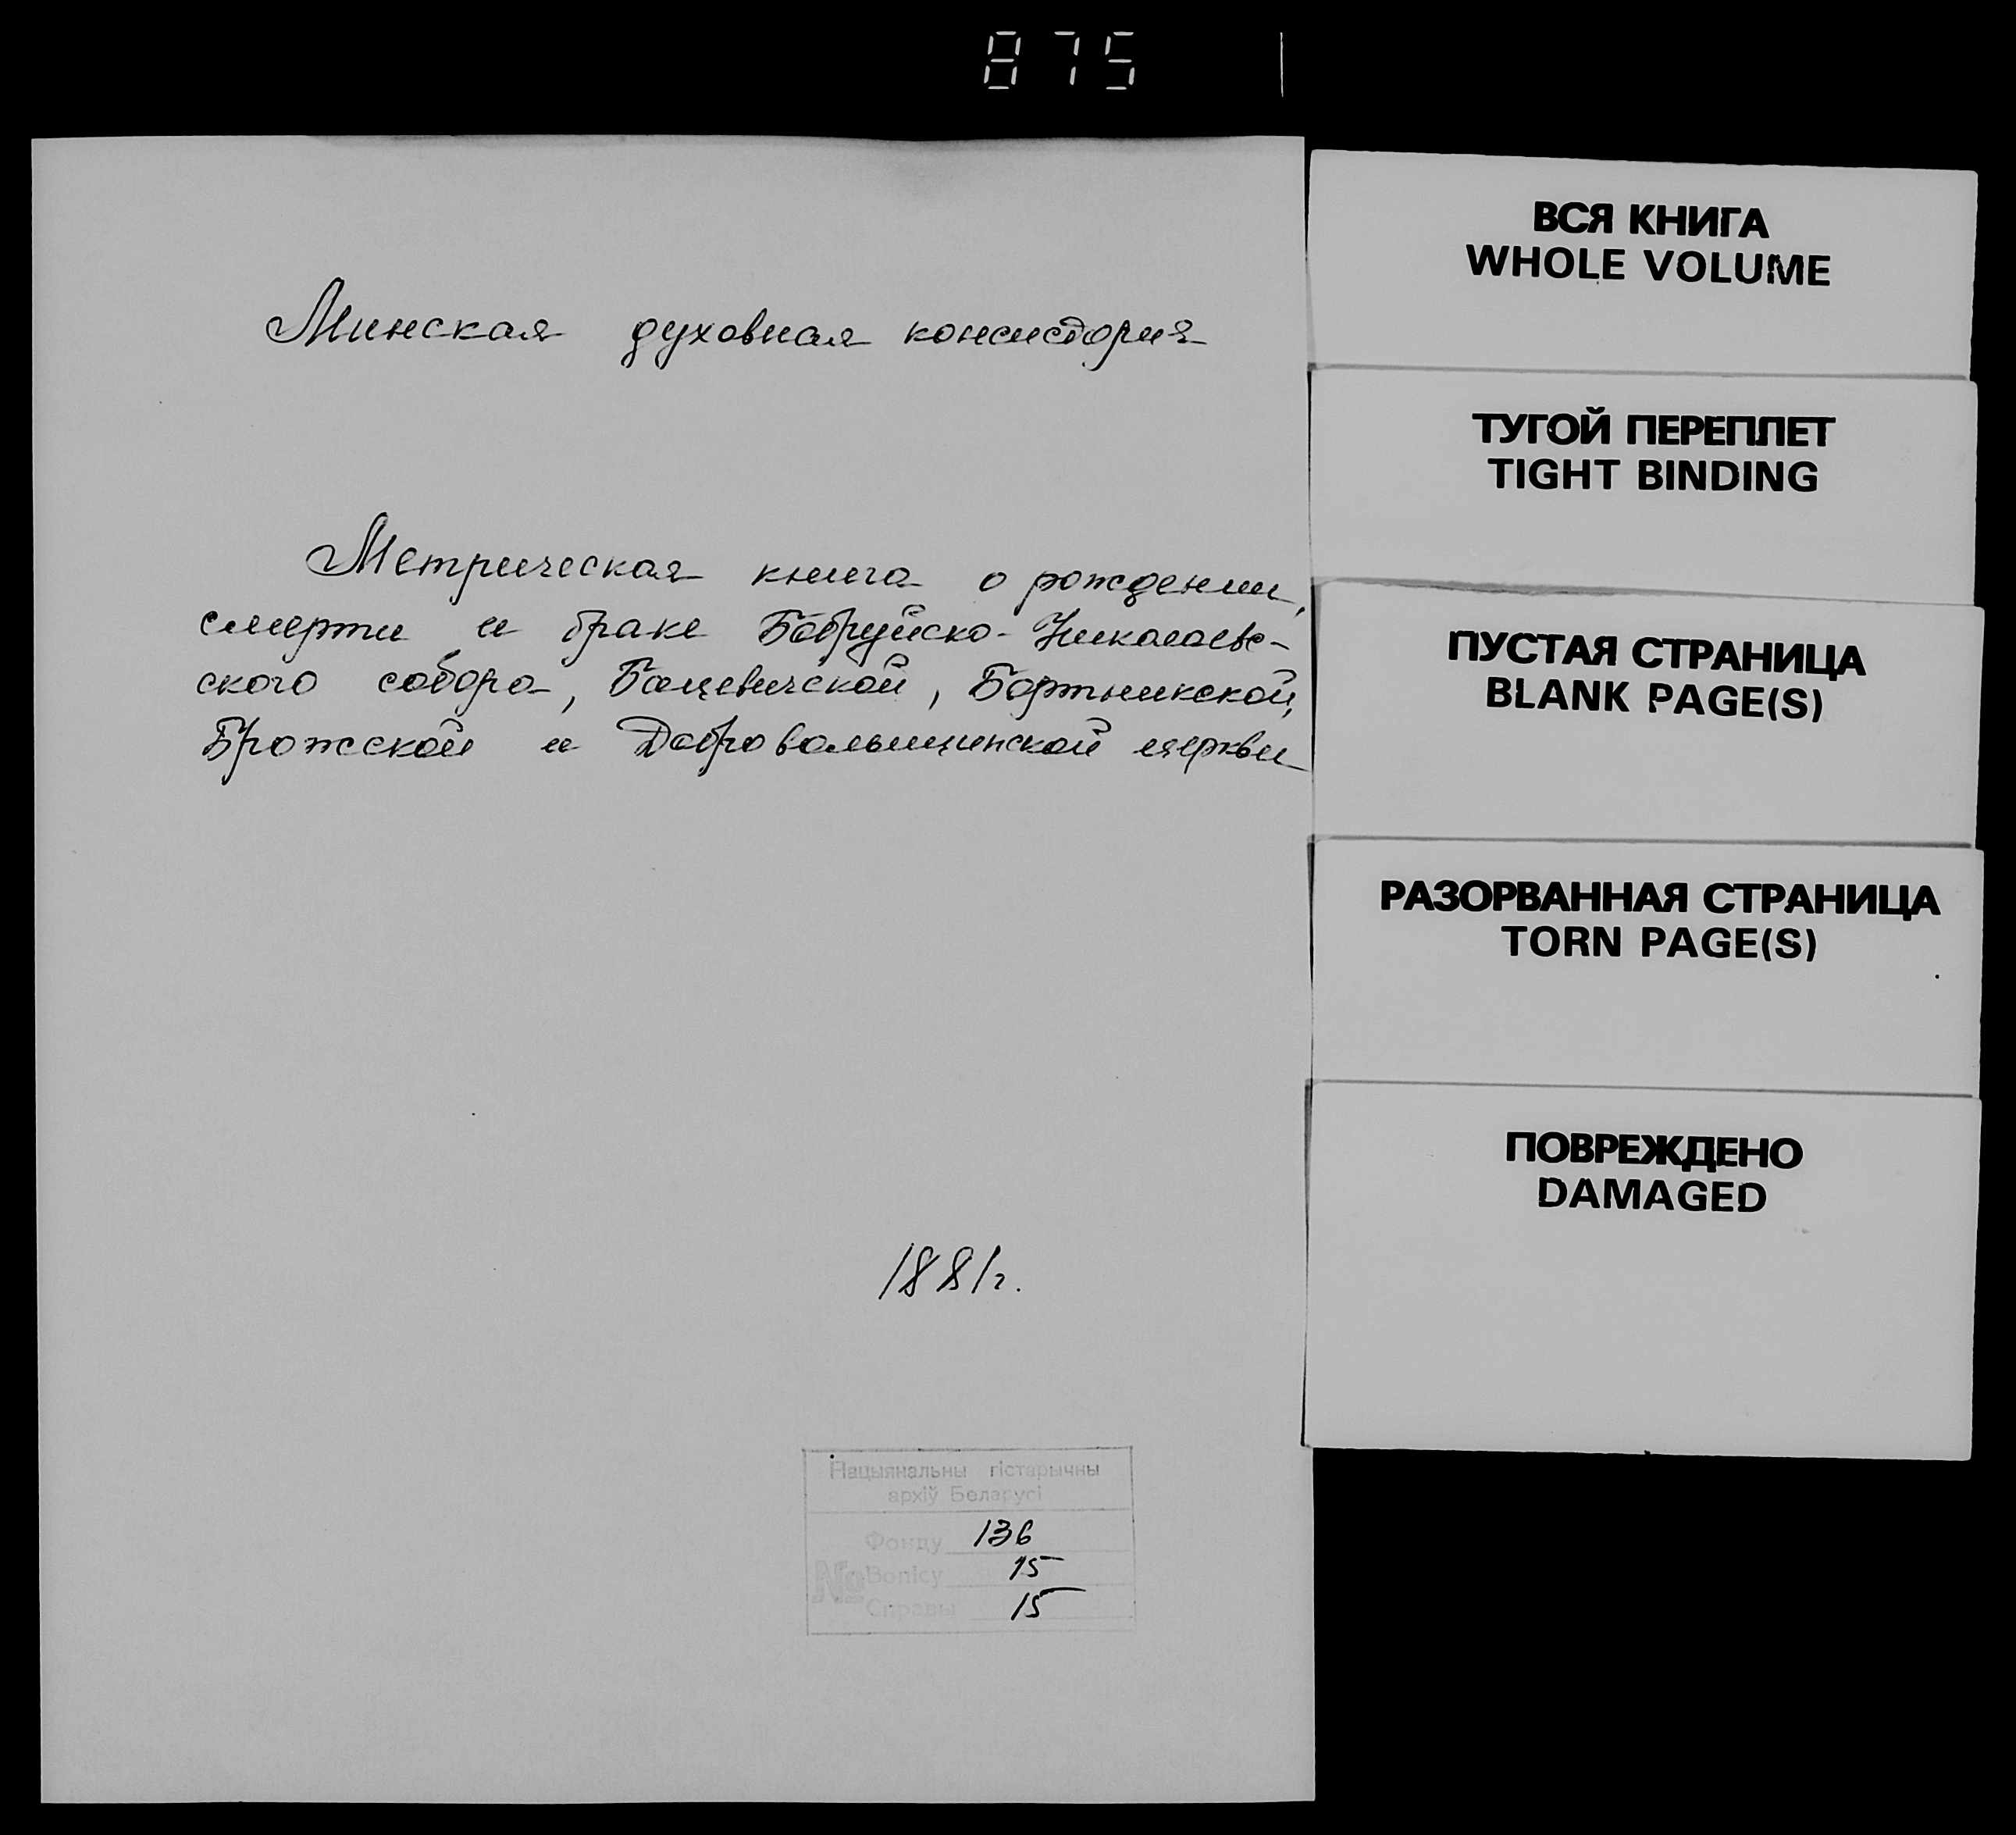 875
Минская духовная консистория
Метрическая книга о рождении,
смерти и браке Бобруйско-Николаевс-
ского собора, Бацевичской, Бортникской,
Брожской и Добровольщинской церкви
1881г.
Нацыянальны гістарычны
архіў Беларусі
Фонду 136
№ Вопісу 15
Справы 15
ВСЯ КНИГА
WHOLE VOLUME
ТУГОЙ ПЕРЕПЛЕТ
TIGHT BINDING
ПУСТАЯ СТРАНИЦА
BLANK PAGE(S)
РАЗОРВАННАЯ СТРАНИЦА
TORN PAGE(S)
ПОВРЕЖДЕНО
DAMAGED